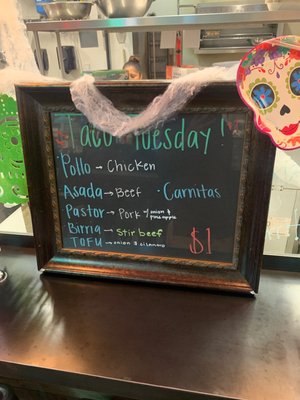 Taco Tuesday!
Pollo → Chicken
Asada → Beef · Carnitas
Pastor → Pork w/ onion & pineapple
Birria → Stir beef
TOFU → onion & cilantro
$1